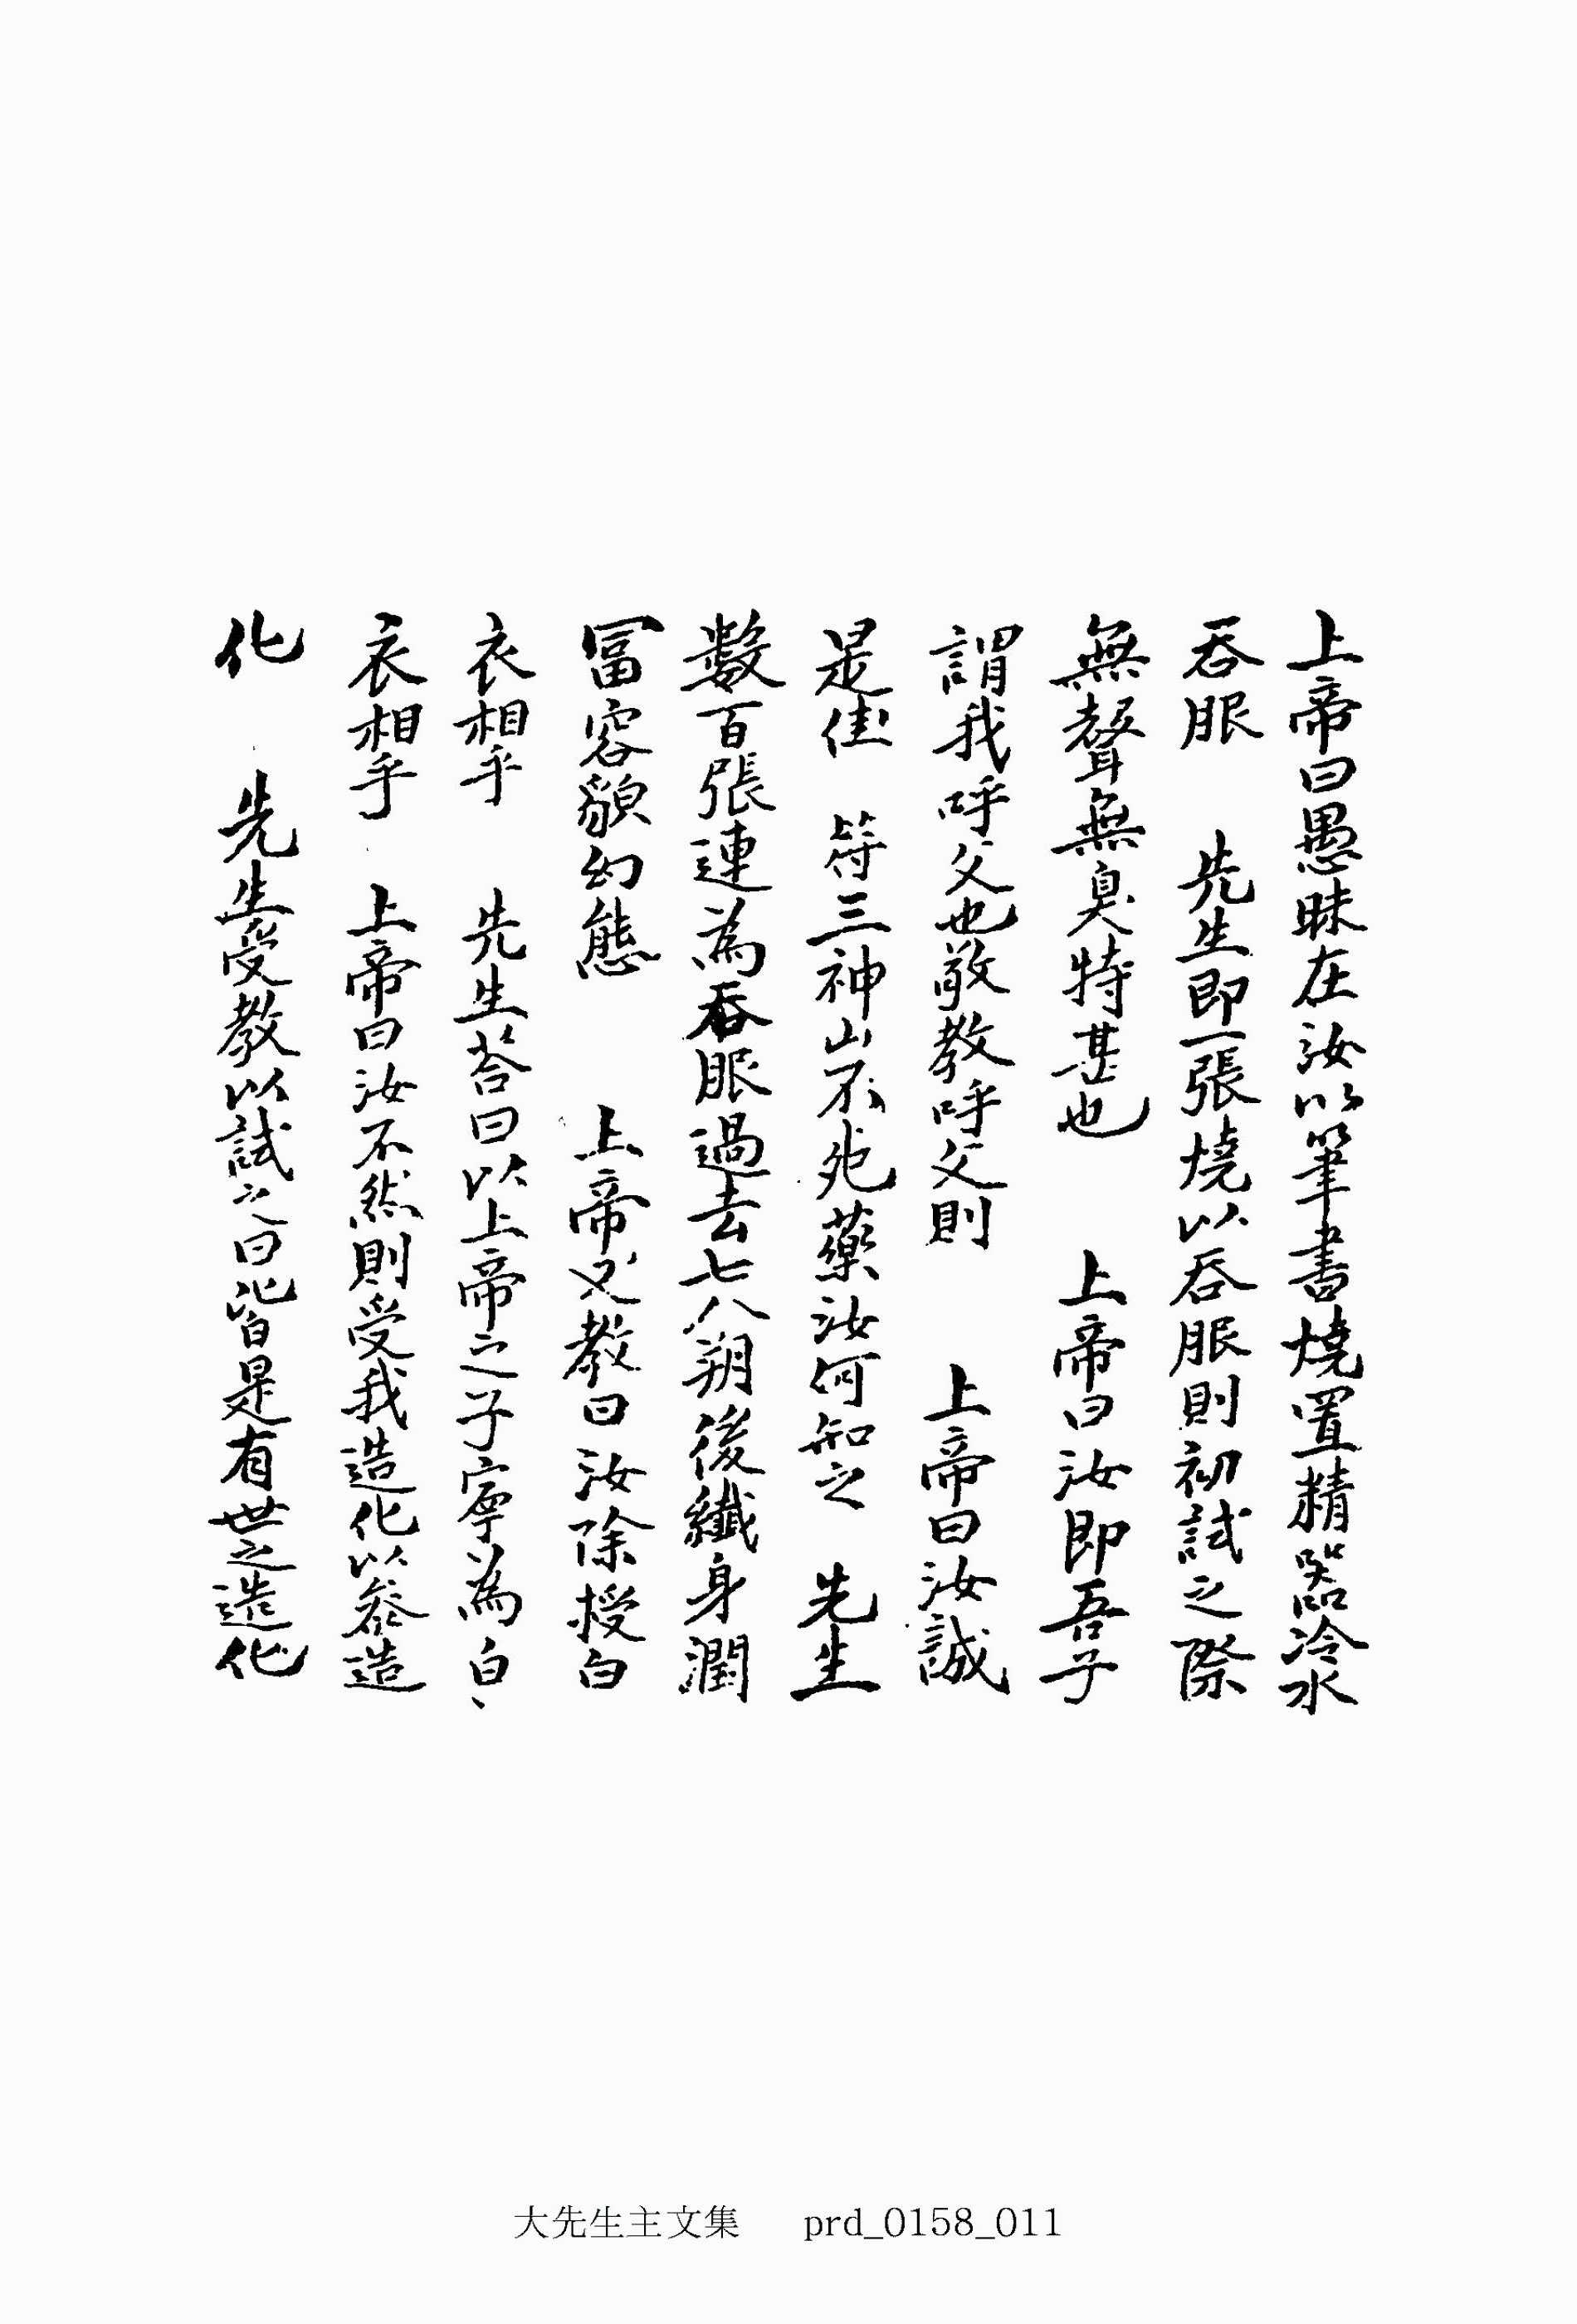 上帝曰愚昧在汝以筆書燒置精器冷水
吞服　先生即一張燒以吞服則初試之際
無聲無臭特甚也　上帝曰汝即吾子
謂我呼父也敬教呼父則　上帝曰汝誠
是佳　符三神山不死藥汝何知之　先生
数百張連為吞服過去七八朔後纖身潤
冨容貌幻態　上帝又教曰汝除授白
衣相乎　先生荅曰以上帝之子寧為白
衣相乎　上帝曰汝不然則受我造化以參造
化　先生受教以試之曰皆是有世之造化
大先生主文集　prd_0158_011